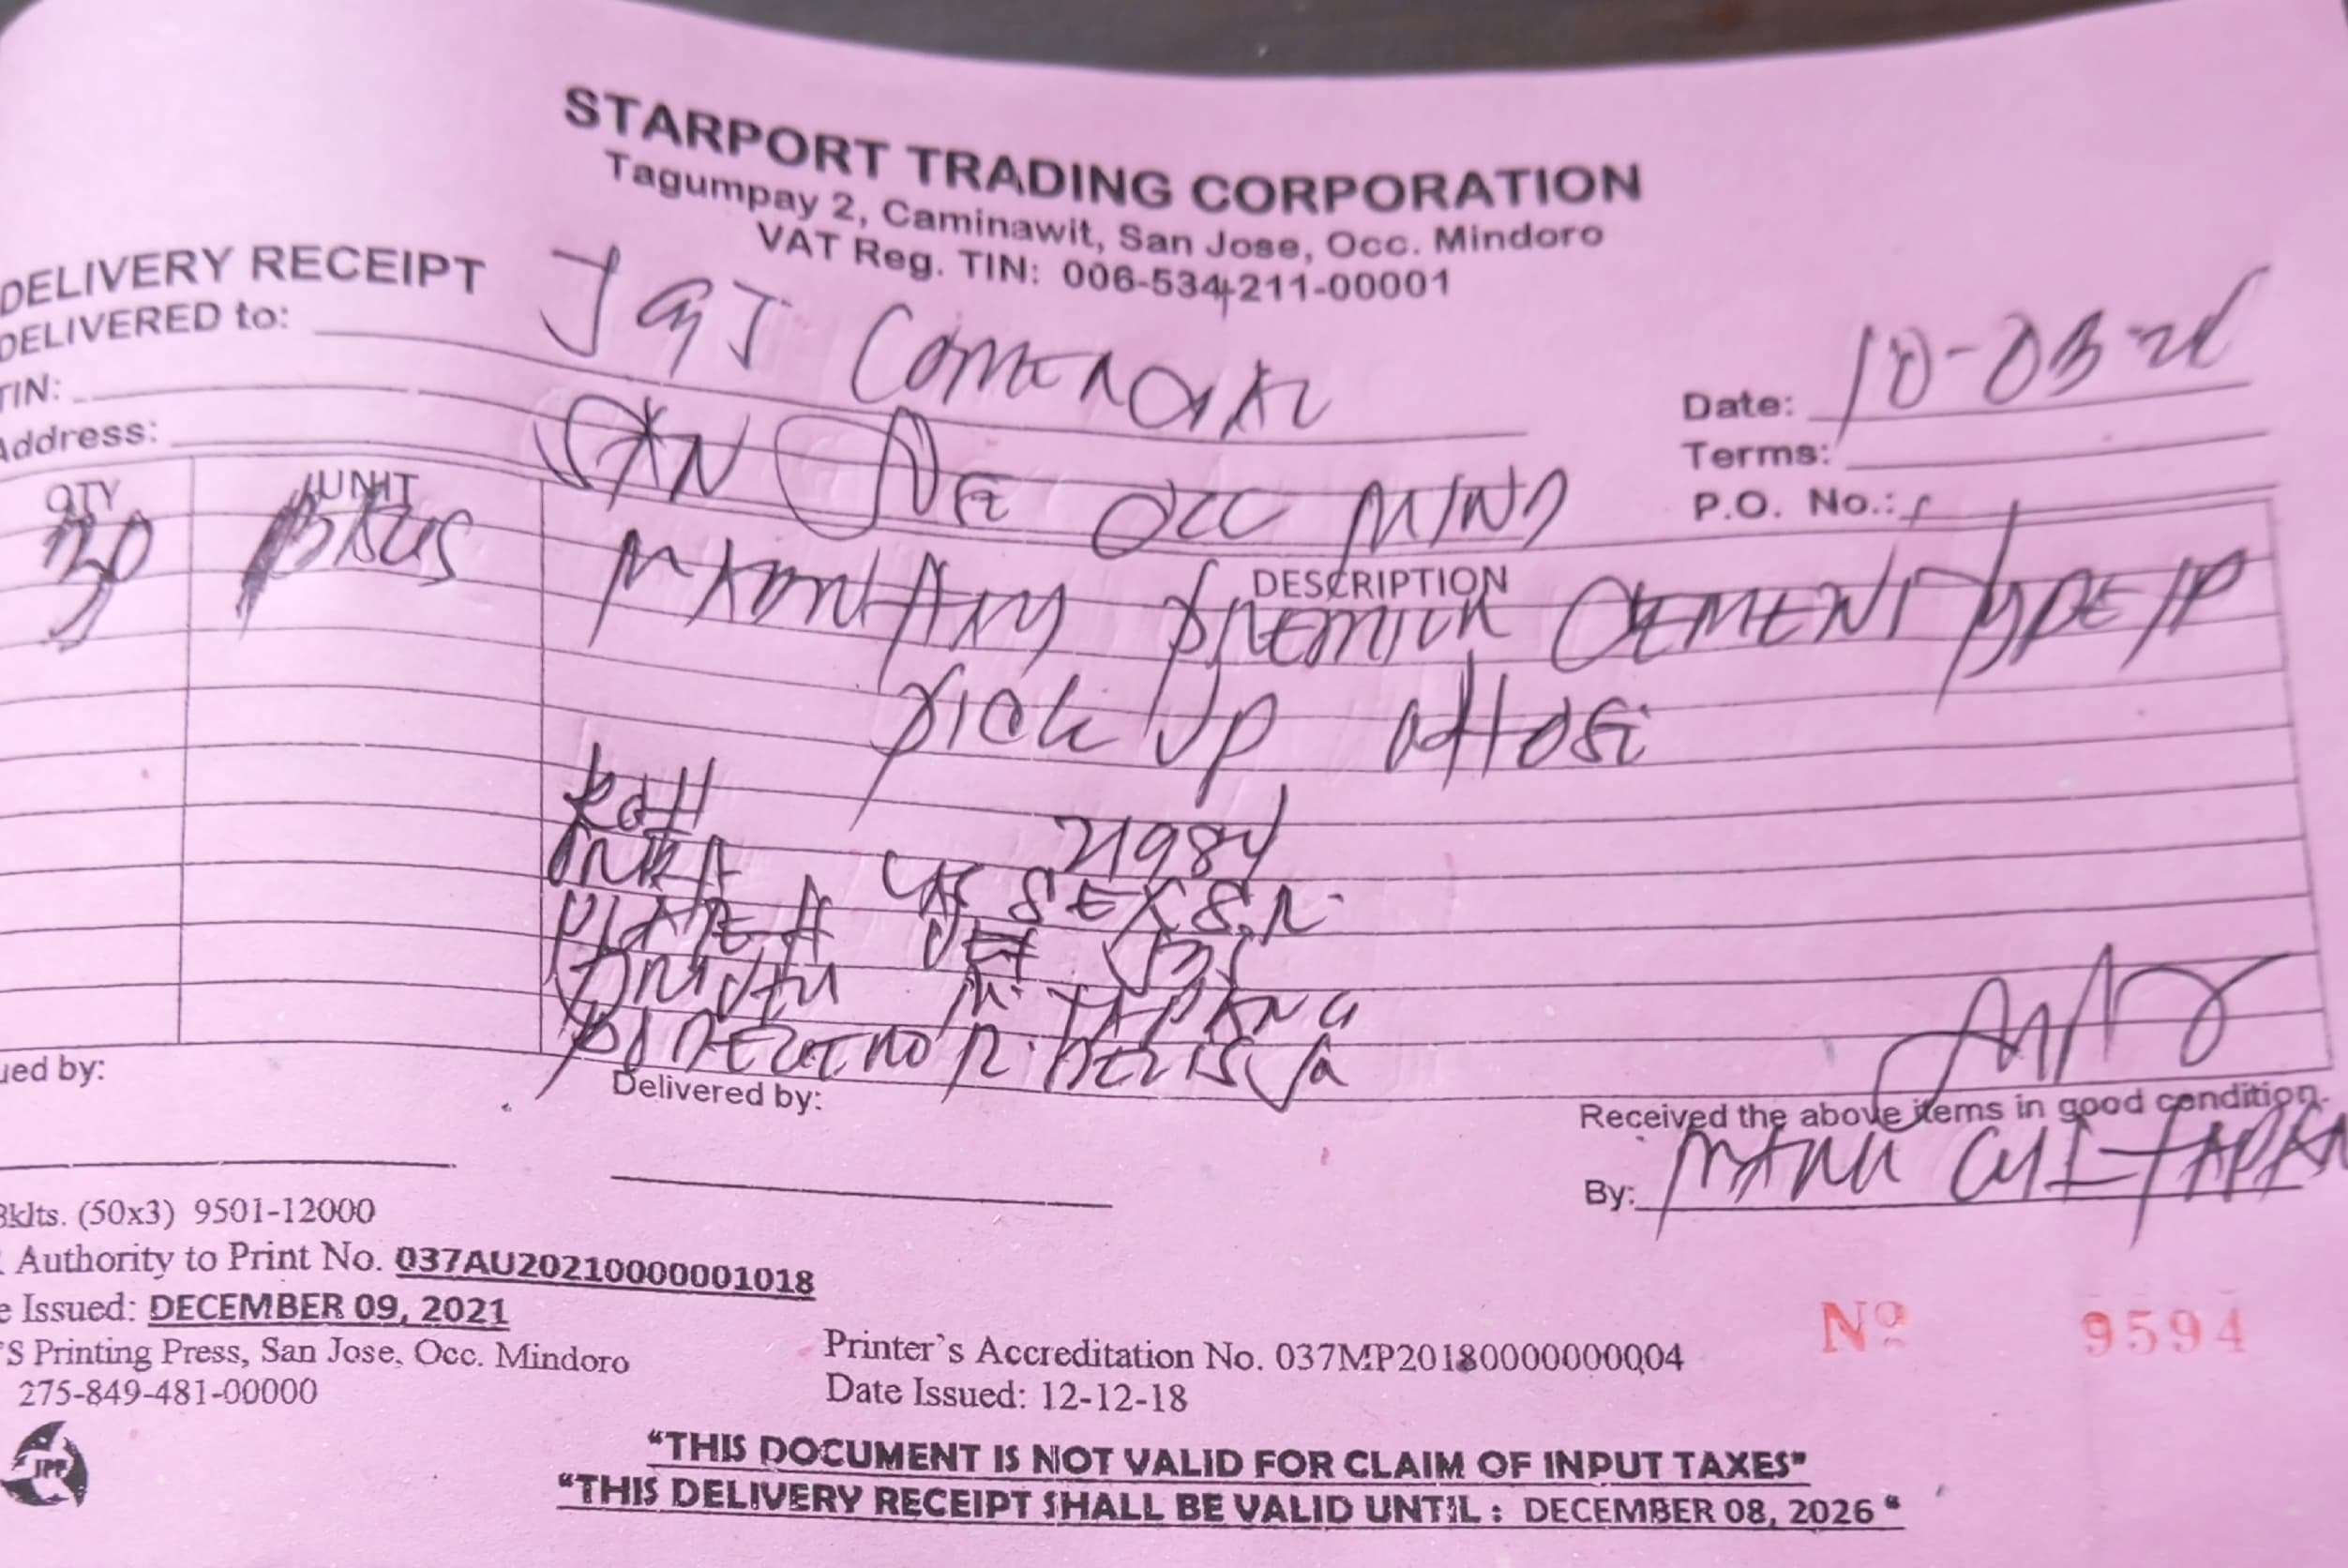 STARPORT TRADING CORPORATION
Tagumpay 2, Caminawit, San Jose, Occ. Mindoro
VAT Reg. TIN: 006-534-211-00001
DELIVERY RECEIPT
DELIVERED to: JGJ
TIN:
Address: SAN JOSE OCC MINDO
Date: 10-03-24
Terms:
P.O. No.:
QTY UNIT DESCRIPTION
30 BAGS PREMIUM CEMENT TYPE 1P
PICK UP
21984
PLATE #
R.
ued by:
Delivered by:
Received the above items in good condition.
By: MARK
Bklts. (50x3) 9501-12000
Authority to Print No. 037AU20210000001018
e Issued: DECEMBER 09, 2021
'S Printing Press, San Jose, Occ. Mindoro
275-849-481-00000
JPP
Printer's Accreditation No. 037MP20180000000004
Date Issued: 12-12-18
Nº 9594
"THIS DOCUMENT IS NOT VALID FOR CLAIM OF INPUT TAXES"
"THIS DELIVERY RECEIPT SHALL BE VALID UNTIL : DECEMBER 08, 2026 "